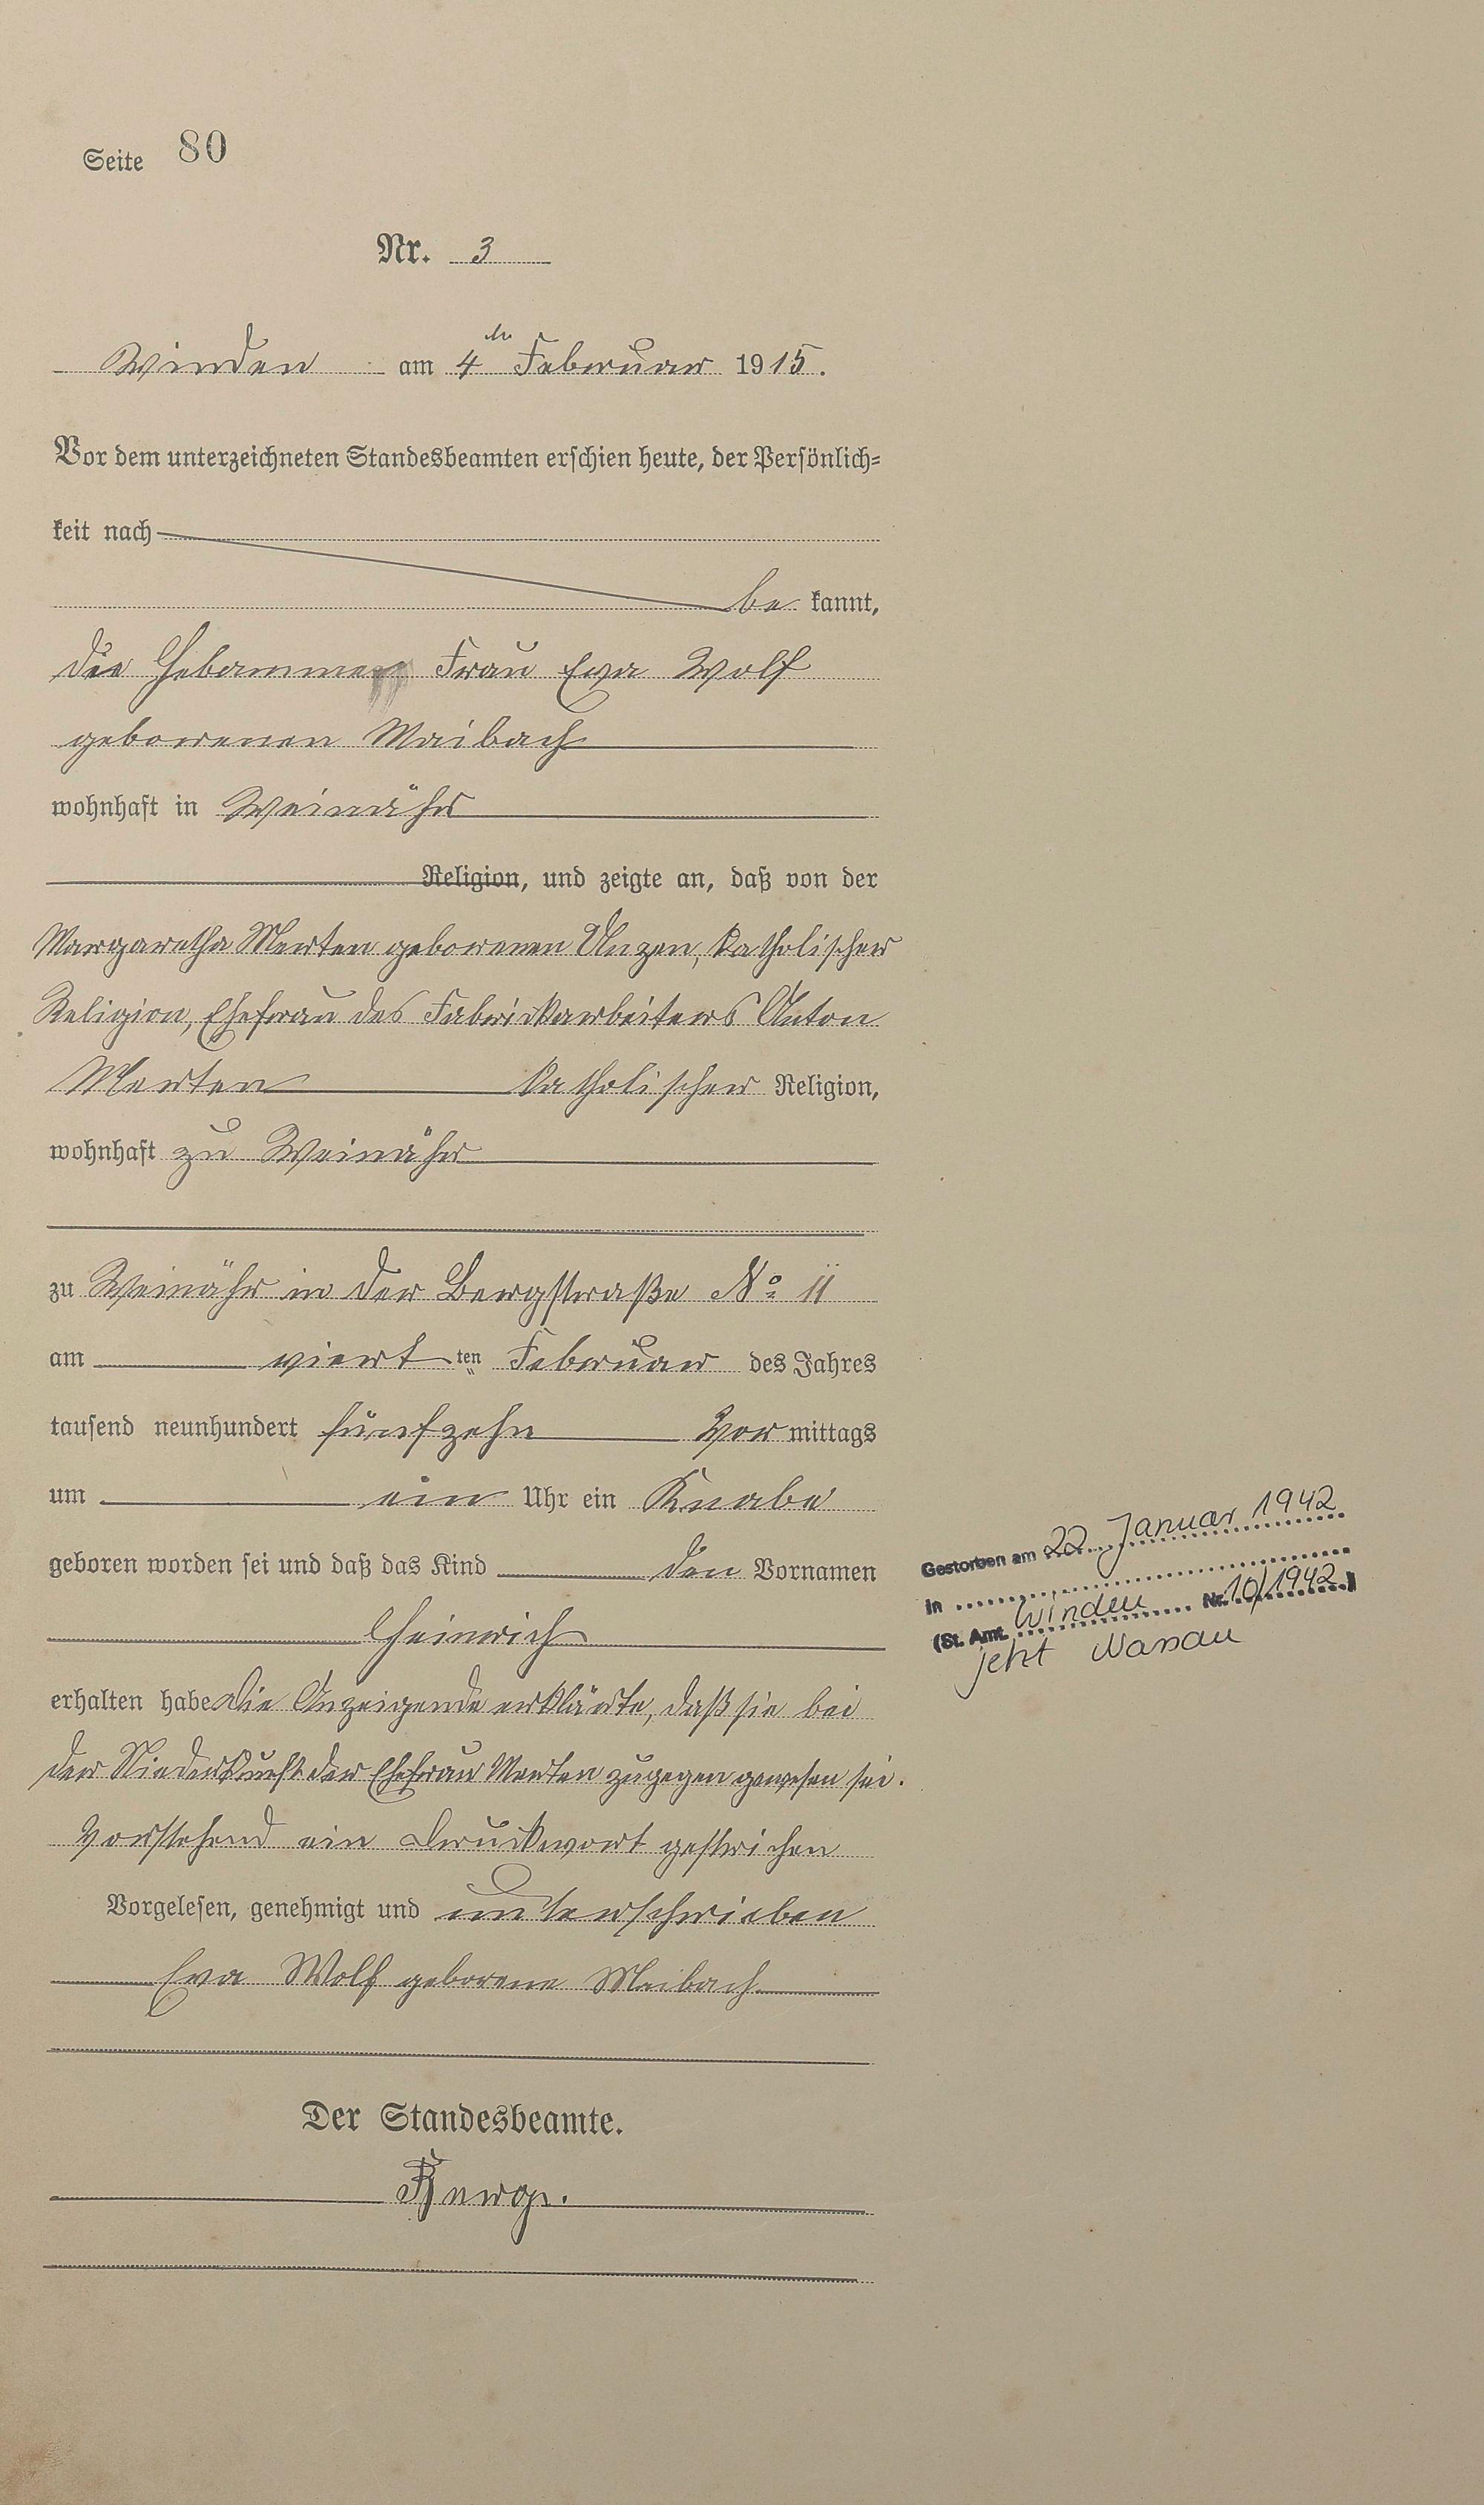 Seite 80
Nr. 3
Winden am 4ten Februar 1915.
Vor dem unterzeichneten Standesbeamten erschien heute, der Persönlich=
keit nach
be kannt,
die Hebamme Frau Eva Wolf
geborenen Maibach
wohnhaft in Weinähr
Religion, und zeigte an, daß von der
Margaretha Merten geborenen Unzen, katholischer
Religion, Ehefrau des Fabrikarbeiters Anton
Merten katholischer Religion,
wohnhaft zu Weinähr
zu Weinähr in der Bergstraße No 11
am viert ten Februar des Jahres
tausend neunhundert fünfzehn Vor mittags
um ein Uhr ein Knabe
geboren worden sei und daß das Kind den Vornamen
Heinrich
erhalten habe Die Anzeigende erklärte, daß sie bei
der Niederkunft der Ehefrau Merten zugegen gewesen sei.
Vorstehend ein Druckwort gestrichen
Vorgelesen, genehmigt und unterschrieben
Eva Wolf geborene Maibach
Der Standesbeamte.
Gestorben am 22. Januar 1942
in
(St. Amt. Winden Nr. 10/1942)
jetzt Nassau